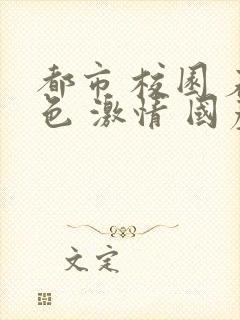 都市 校园 
色 激情 国
文定